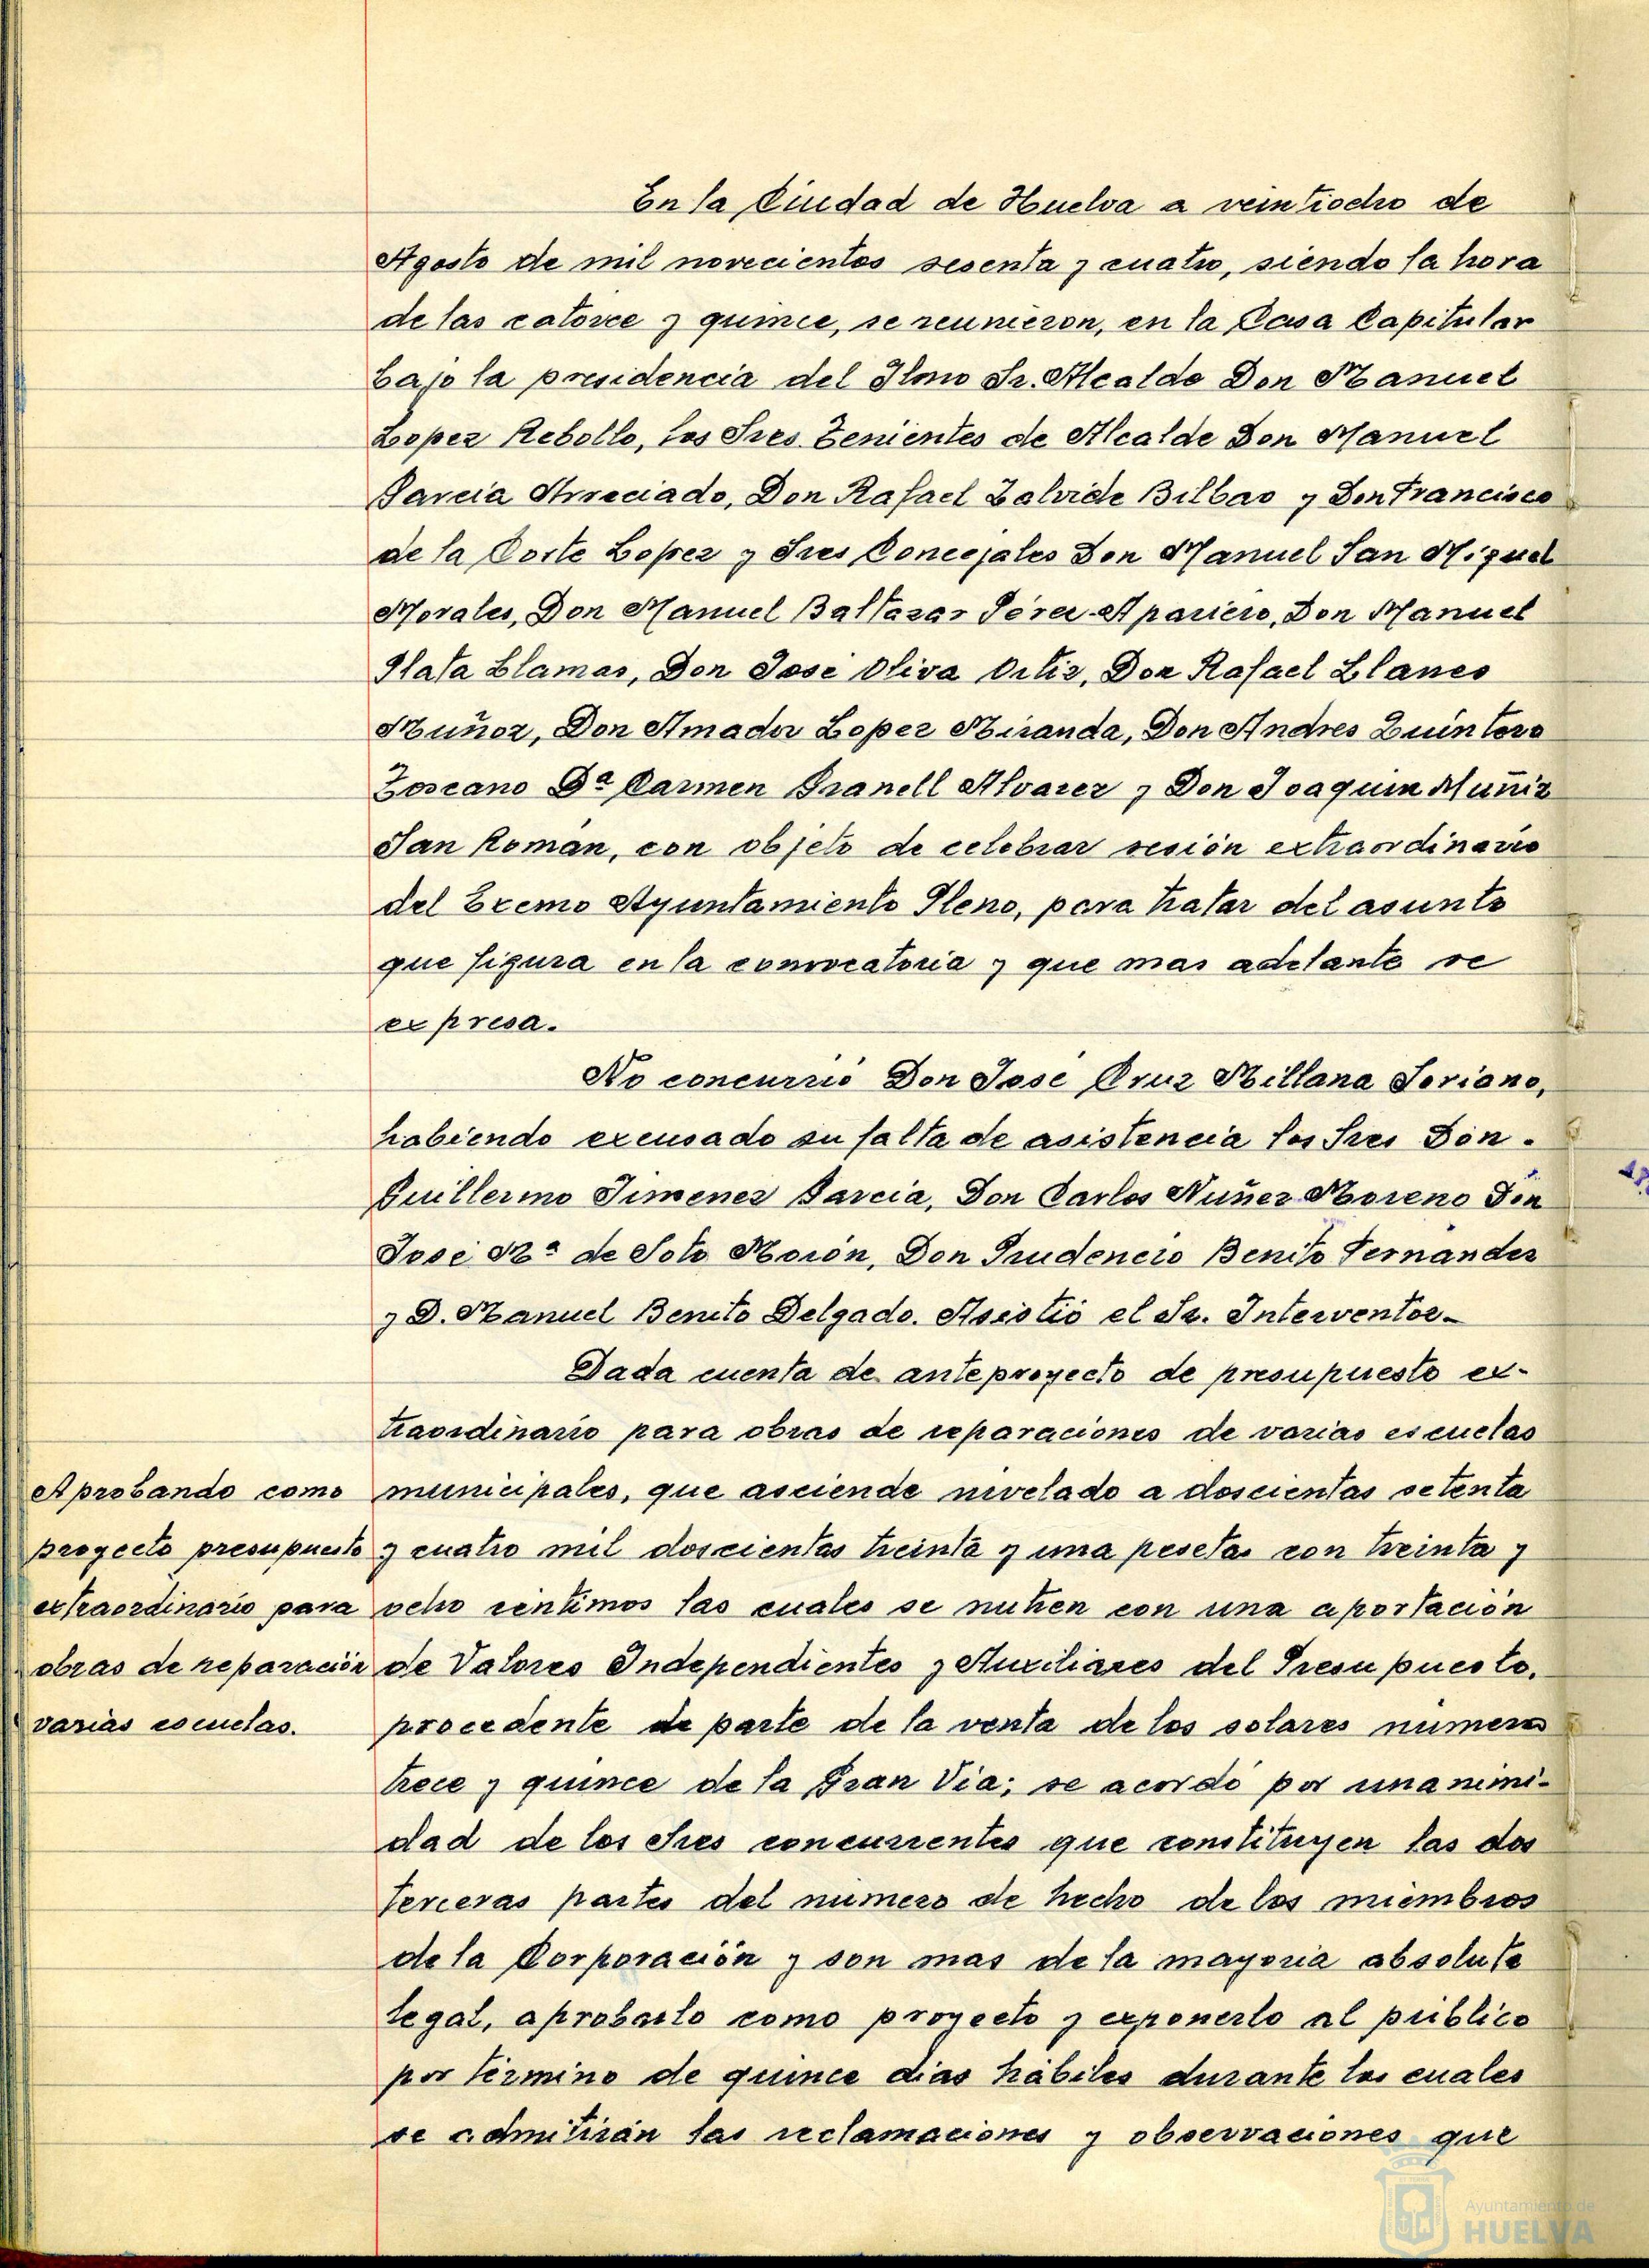 En la Ciudad de Huelva a veintiocho de
Agosto de mil novecientos sesenta y cuatro, siendo la hora
de las catorce y quince, se reunieron, en la Casa Capitular
bajo la presidencia del Ilmo Sr. Alcalde Don Manuel
Lopez Rebollo, los Sres. Tenientes de Alcalde Don Manuel
Garcia Arreciado, Don Rafael Zalvide Bilbao y Don Francisco
de la Corte Lopez y Sres Concejales Don Manuel San Miguel
Morales, Don Manuel Baltasar Pérez Aparicio, Don Manuel
Plata Llamas, Don José Oliva Ortiz, Don Rafael Llanes
Muñoz, Don Amador Lopez Miranda, Don Andres Quintero
Toscano Dª Carmen Granell Alvarez y Don Joaquin Muñiz
San Román, con objeto de celebrar sesión extraordinaria
del Excmo Ayuntamiento Pleno, para tratar del asunto
que figura en la convocatoria y que mas adelante se
expresa.
No concurrió Don José Cruz Millana Soriano,
habiendo excusado su falta de asistencia los Sres Don.
Guillermo Jimenez Garcia, Don Carlos Nuñez Moreno Don
José Mª de Soto Morón, Don Prudencio Benito Fernandez
y D. Manuel Benito Delgado. Asistió el Sr. Interventor-
Dada cuenta de anteproyecto de presupuesto ex-
traordinario para obras de reparaciones de varias escuelas
Aprobando como
proyecto presupuesto
extraordinario para
obras de reparación
varias escuelas.
municipales, que asciende nivelado a doscientas setenta
y cuatro mil doscientas treinta y una pesetas con treinta y
ocho céntimos las cuales se nutren con una aportación
de Valores Independientes y Auxiliares del Presupuesto,
procedente de parte de la venta de los solares numeros
trece y quince de la Gran Via; se acordó por unanimi-
dad de los Sres concurrentes que constituyen las dos
terceras partes del número de hecho de los miembros
de la Corporación y son mas de la mayoria absoluta
legal, aprobarlo como proyecto y exponerlo al público
por término de quince dias hábiles durante los cuales
se admitirán las reclamaciones y observaciones que
Ayuntamiento de
HUELVA